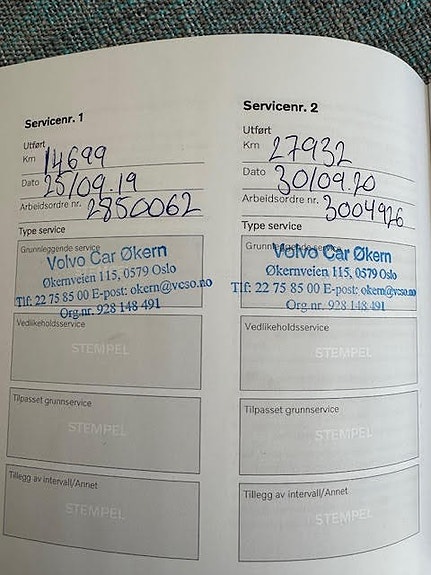 Servicenr. 1
Utført
Km 14699
Dato 25/09.19
Arbeidsordre nr. 2850062
Type service
Grunnleggende service
Volvo Car Økern
Økernveien 115, 0579 Oslo
Tlf: 22 75 85 00 E-post: okern@vcso.no
Org.nr. 928 148 491
Vedlikeholdsservice
STEMPEL
Tilpasset grunnservice
STEMPEL
Tillegg av intervall/Annet
STEMPEL
Servicenr. 2
Utført
Km 27932
Dato 30/09.20
Arbeidsordre nr. 3004926
Type service
Grunnleggende service
Volvo Car Økern
Økernveien 115, 0579 Oslo
Tlf: 22 75 85 00 E-post: okern@vcso.no
Org.nr. 928 148 491
Vedlikeholdsservice
STEMPEL
Tilpasset grunnservice
STEMPEL
Tillegg av intervall/Annet
STEMPEL